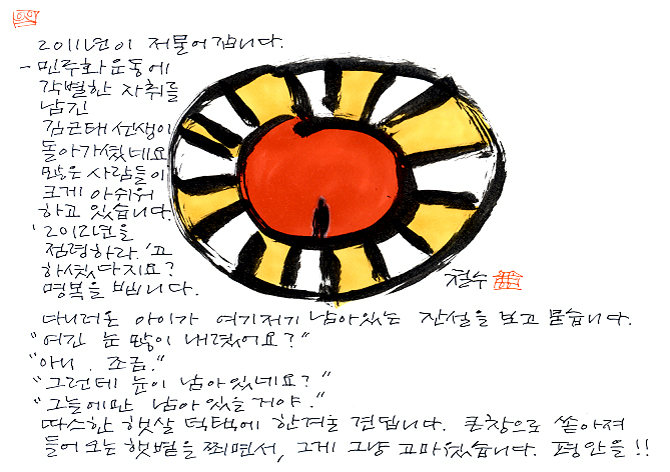 2011년이 저물어갑니다.
- 민주화운동에
각별한 자취를
남긴
김근태 선생이
돌아가셨네요
많은 사람들이
크게 아쉬워
하고 있습니다.
'2012년을
점령하라.'고
하셨다지요?
명복을 빕니다.
철수
다니러온 아이가 여기저기 남아있는 잔설을 보고 묻습니다.
"여긴 눈 많이 내렸어요?"
"아니. 조금."
"그런데 눈이 남아있네요?"
"그늘에만 남아있을거야."
따스한 햇살 덕택에 한겨울 견딥니다. 큰창으로 쏟아져
들어오는 햇볕을 쬐면서, 그게 그냥 고마웠습니다. 평안을!!